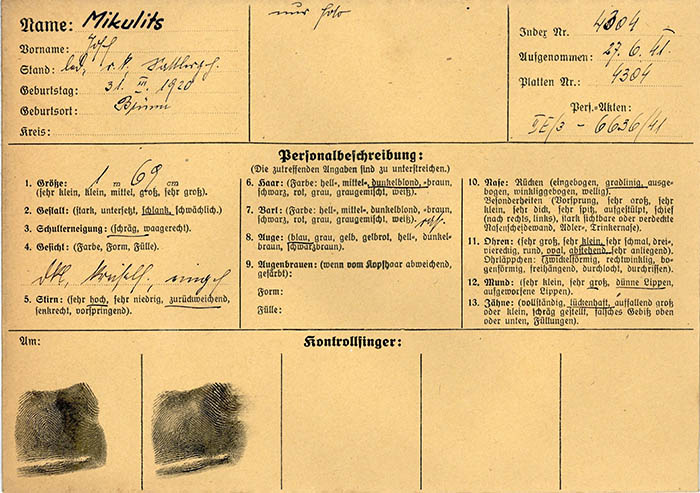 Name: Mikulits
Vorname: Josef
Stand: led. r.k.
Geburtstag: 31. III. 1920
Geburtsort: Brünn
Kreis:
nur
Index Nr. 4304
Aufgenommen: 27. 6. 41.
Platten Nr.: 4304
Pers.-Akten:
IE/3 - 6636/41
Personalbeschreibung:
(Die zutreffenden Angaben sind zu unterstreichen.)
1. Größe: 1 m 69 cm
(sehr klein, klein, mittel, groß, sehr groß).
2. Gestalt: (stark, untersetzt, schlank, schwächlich.)
3. Schulterneigung: (schräg, waagerecht.)
4. Gesicht: (Farbe, Form, Fülle).
5. Stirn: (sehr hoch, sehr niedrig, zurückweichend,
senkrecht, vorspringend).
6. Haar: (Farbe: hell-, mittel-, dunkelblond, -braun,
schwarz, rot, grau, graugemischt, weiß).
7. Bart: (Farbe: hell-, mittel-, dunkelblond, -braun,
schwarz, rot, grau, graugemischt, weiß).
8. Auge: (blau, grau, gelb, gelbrot, hell-, dunkel-
braun, schwarzbraun.)
9. Augenbrauen: (wenn vom Kopfhaar abweichend,
gefärbt):
Form:
Fülle:
10. Nase: Rücken (eingebogen, gradlinig, ausge-
bogen, winkliggebogen, wellig).
Besonderheiten (Vorsprung, sehr groß, sehr
klein, sehr dick, sehr spitz, aufgestülpt, schief
(nach rechts, links), stark sichtbare oder verdeckte
Nasenscheidewand, Adler-, Trinkernase).
11. Ohren: (sehr groß, sehr klein, sehr schmal, drei-,
viereckig, rund, oval, abstehend, sehr anliegend).
Ohrläppchen: (zwickelförmig, rechtwinklig, bo-
genförmig, freihängend, durchlocht, durchrissen).
12. Mund: (sehr klein, sehr groß, dünne Lippen,
aufgeworfene Lippen).
13. Zähne: (vollständig, lückenhaft, auffallend groß
oder klein, schräg gestellt, falsches Gebiß oben
oder unten, Füllungen).
Am:
Kontrollfinger: